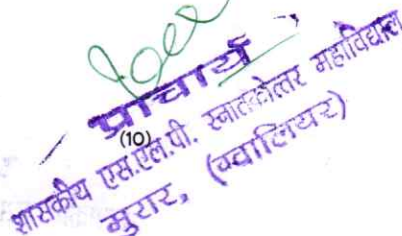 प्राचार्य
(10)
शासकीय एस.एल.पी. स्नातकोत्तर महाविद्याल
मुरार, (ग्वालियर)